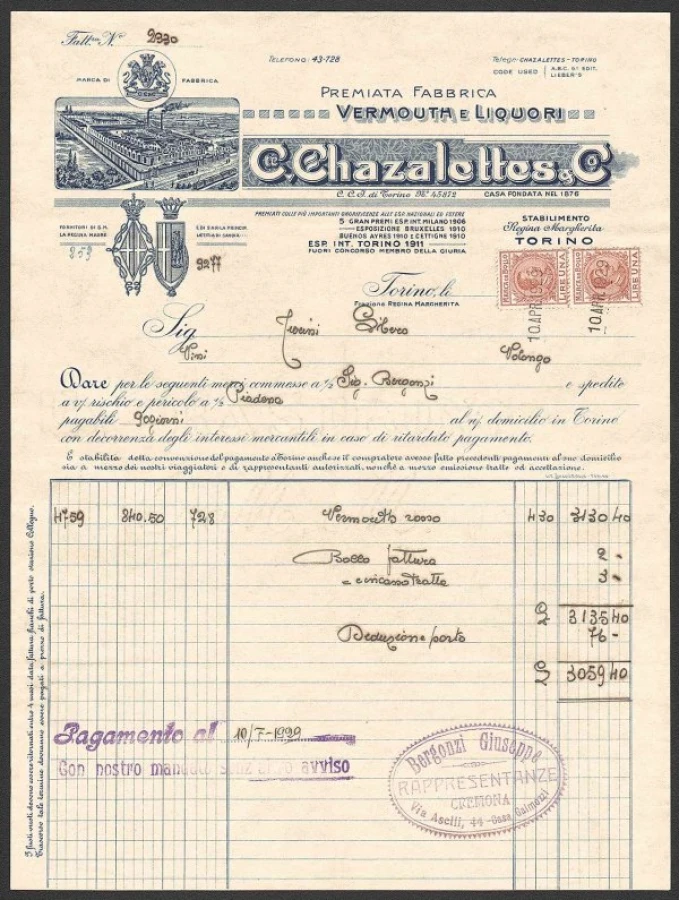 Fatt.ra N.o 2330
TELEFONO: 43-728
Telegr: CHAZALETTES-TORINO
CODE USED A.B.C. 5a EDIT.
LIEBER'S
MARCA DI FABBRICA
PREMIATA FABBRICA
VERMOUTH E LIQUORI
C. Chazalettes & C.
C.C.I. di Torino No. 45872
CASA FONDATA NEL 1876
FORNITORI DI S.M.
LA REGINA MADRE
E DI S.A.R. LA PRINCIP.
LAETITIA DI SAVOIA
PREMIATI COLLE PIÙ IMPORTANTI ONORIFICENZE ALLE ESP. NAZIONALI ED ESTERE
5 GRAN PREMI ESP. INT. MILANO 1906
ESPOSIZIONE BRUXELLES 1910
BUENOS AYRES 1910 E CETTIGNE 1910
ESP. INT. TORINO 1911
FUORI CONCORSO MEMBRO DELLA GIURIA
STABILIMENTO
Regina Margherita
TORINO
859
9277
Torino, lo
Frazione REGINA MARGHERITA
MARCA DA BOLLO
LIRE UNA
10 APR 1929
MARCA DA BOLLO
LIRE UNA
10 APR 1929
Sig.
Vini Volongo
Dare per le seguenti merci commesse a 1/2 Sig. Bergonzi e spedite
a v/ rischio e pericolo a 1/2 Piadena
pagabili 90 giorni al n/ domicilio in Torino
con decorrenza degli interessi mercantili in caso di ritardato pagamento.
È stabilita detta convenzione del pagamento a Torino anche se il compratore avesse fatto precedenti pagamenti al suo domicilio
sia a mezzo dei nostri viaggiatori e di rappresentanti autorizzati, nonchè a mezzo emissione tratte od accettazione.
4759 840.50 728 Vermouth rosso 430 3130 40
Bollo fattura 2 -
tratta 3 -
£ 3135 40
Deduzione porto 76 -
£ 3059 40
Pagamento al 10/7-1929
Con nostro mandato senz'altro avviso
Bergonzi Giuseppe
RAPPRESENTANZE
CREMONA
Via Aselli, 44 - Casa
I fusti vuoti devono essere ritornati entro 4 mesi data fattura franchi di porto stazione Collegno.
Trascorso tale termine dovranno essere pagati a prezzo di fattura.